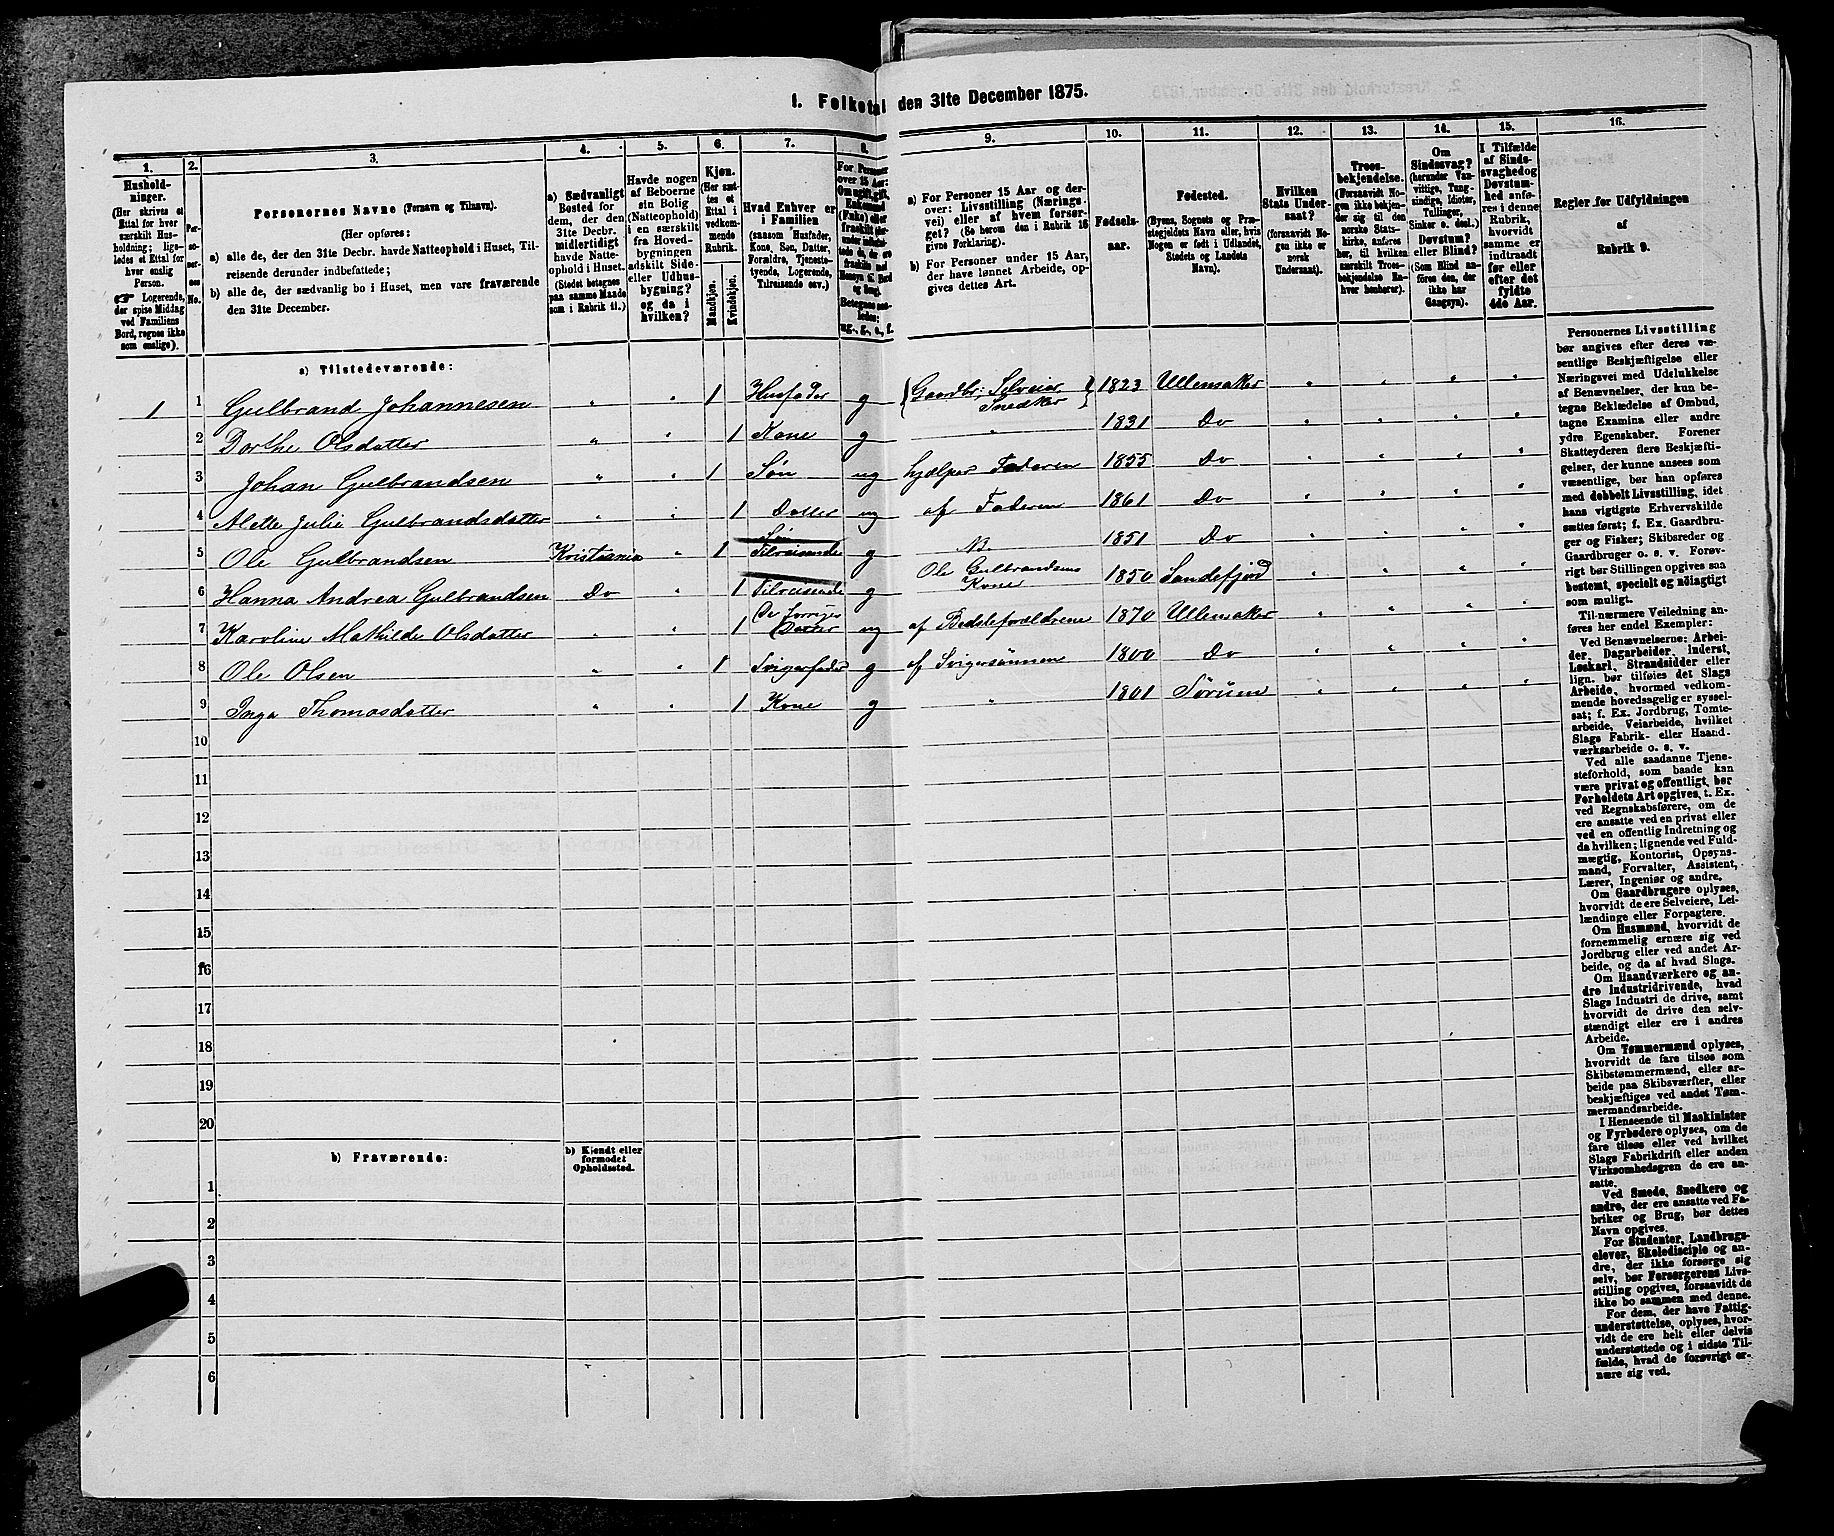 1. Folketal den 31te December 1875.
1.
2.
3.
4.
5.
6.
7.
8.
9.
10.
11.
12.
13.
14.
15.
16.
Hushold-
ninger.
(Her skrives et
Ettal for hver
særskilt Hus-
holdning; lige-
ledes et Ettal for
hver enslig
Person.
☞ Logerende,
der spise Middag
ved Familiens
Bord, regnes ikke
som enslige).
Per-
soner-
nes
No.
Personernes Navne (Fornavn og Tilnavn).
(Her opføres:
a) alle de, der den 31te Decbr. havde Natteophold i Huset, Til-
reisende derunder indbefattede;
b) alle de, der sædvanlig bo i Huset, men vare fraværende
den 31te December.
a) Sædvanligt
Bosted for
dem, der den
31te Decbr.
midlertidigt
havde Natte-
ophold i Huset.
(Stedet betegnes
paa samme Maade
som i Rubrik 11.)
Havde nogen
af Beboerne
sin Bolig
(Natteophold)
i en særskilt
fra Hoved-
bygningen
adskilt Side-
eller Udhus-
bygning?
og da i
hvilken?
Kjøn.
(Her sæt-
tes et
Ettal i
vedkom-
mende
Rubrik.
Mandkjøn.
Kvindekjøn.
Hvad Enhver er
i Familien
(saasom Husfader,
Kone, Søn, Datter,
Forældre, Tjeneste-
tyende, Logerende,
Tilreisende osv.)
For Personer
over 15 Aar:
Om ugift, gift,
Enkemand
(Enke) eller
fraskilt
Betegnes saa-
ledes:
ug., g., e., f.
a) For Personer 15 Aar og der-
over: Livsstilling (Nærings-
vei) eller af hvem forsør-
get? (Se herom den i Rubrik 16
givne Forklaring).
b) For Personer under 15 Aar,
der have lønnet Arbeide, op-
gives dettes Art.
Fødsels-
aar.
Fødested.
(Byens, Sognets og Præ-
stegjeldets Navn eller, hvis
Nogen er født i Udlandet,
Stedets og Landets
Navn).
Hvilken
Stats Under-
saat?
(forsaavidt No-
gen ikke er
norsk
Undersaat).
Troes-
bekjendelse.
(Forsaavidt No-
gen ikke bekjen-
der sig til den
norske Stats-
kirke, anføres
her, til hvilken
særskilt Troes-
bekjendelse En-
hver henhører).
Om
Sindssvag?
(herunder Van-
vittige, Tung-
sindige, Idioter,
Tullinger,
Sinker o. desl.)
Døvstum?
eller Blind?
(Som Blind an-
føres den, der
ikke har
Gangsyn).
I Tilfælde
af Sinds-
svaghed og
Døvstum-
hed anfø-
res i denne
Rubrik,
hvorvidt
samme er
indtraadt
før eller
efter det
fyldte
4de Aar.
Regler for Udfyldningen
af
Rubrik 9.
a) Tilstedeværende:
1 1 Gulbrand Johannesen " " 1 Husfader g { Gaardbr; Selveier Snedker } 1823 Ullensaker " " " "
2 Dorthe Olsdatter " " 1 Kone g " 1831 Do " " " "
3 Johan Gulbrandsen " " 1 Søn ug hjælper Faderen 1855 Do " " " "
4 Alette Julie Gulbrandsdatter " " 1 Datter ug af Faderen 1861 Do " " " "
5 Ole Gulbrandsen Kristiania " 1 Søn Tilreisende g 1851 Do " " " "
6 Hanna Andrea Gulbrandsen Do " 1 Tilreisende g Ole Gulbrandsens Kone 1850 Sandefjord " " " "
7 Karoline Mathilde Olsdatter " " 1 De Forriges Datter ug af Bedsteforældrene 1870 Ullensaker " " " "
8 Ole Olsen " " 1 Svigerfader g af Svigersønnen 1800 Do " " " "
9 Inga Thomasdatter " " 1 Kone g " 1801 Sørum " " " "
10
11
12
13
14
15
16
17
18
19
20
b) Fraværende:
b) Kjendt eller
formodet
Opholdssted.
1
2
3
4
5
6
Personernes Livsstilling
bør angives efter deres væ-
sentlige Beskjæftigelse eller
Næringsvei med Udelukkelse
af Benævnelser, der kun be-
tegne Beklædelse af Ombud,
tagne Examina eller andre
ydre Egenskaber. Forener
Skatteyderen flere Beskjæfti-
gelser, der kunne ansees som
væsentlige, bør han opføres
med dobbelt Livsstilling, idet
hans vigtigste Erhvervskilde
sættes først; f. Ex. Gaardbru-
ger og Fisker; Skibsreder og
Gaardbruger o. s. v. Forøv-
rigt bør Stillingen opgives saa
bestemt, specielt og nøiagtigt
som muligt.
Til nærmere Veiledning an-
føres her endel Exempler:
Ved Benævnelserne: Arbei-
der, Dagarbeider, Inderst,
Løskarl, Strandsidder eller
lign. bør tilføies det Slags
Arbeide, hvormed vedkom-
mende hovedsagelig er syssel-
sat; f. Ex. Jordbrug, Tomte-
arbeide, Veiarbeide, hvilket
Slags Fabrik- eller Haand-
værksarbeide o. s. v.
Ved alle saadanne Tjene-
steforhold, som baade kan
være privat og offentligt, bør
Forholdets Art opgives, f. Ex.
ved Regnskabsførere, om de
ere ansatte ved en privat eller
ved en offentlig Indretning og
da hvilken; lignende ved Fuld-
mægtig, Kontorist, Opsyns-
mand, Forvalter, Assistent,
Lærer, Ingeniør og andre.
Om Gaardbrugere oplyses,
hvorvidt de ere Selveiere, Lei-
lændinge eller Forpagtere.
Om Husmænd, hvorvidt de
fornemmelig ernære sig ved
Jordbrug eller ved andet Ar-
beide, og da af hvad Slags.
Om Haandværkere og an-
dre Industridrivende, hvad
Slags Industri de drive, samt
hvorvidt de drive den selv-
stændigt eller ere i andres
Arbeide.
Om Tømmermænd oplyses,
hvorvidt de fare tilsøs som
Skibstømmermænd, eller ar-
beide paa Skibsværfter, eller
beskjæftiges ved andet Tøm-
mermandsarbeide.
I Henseende til Maskinister
og Fyrbødere oplyses, om de
fare tilsøs eller ved hvilket
Slags Fabrikdrift eller anden
Virksomhedsgren de ere an-
satte.
Ved Smede, Snedkere og
andre, der ere ansatte ved Fa-
briker og Brug, bør dettes
Navn opgives.
For Studenter, Landbrugs-
elever, Skoledisciple og an-
dre, der ikke forsørge sig
selv, bør Forsørgerens Livs-
stilling opgives, forsaavidt de
ikke bo sammen med denne.
For dem, der have Fattig-
understøttelse, oplyses, hvor-
vidt de ere helt eller delvis
understøttede og i sidste Til-
fælde, hvad de forøvrigt er-
nære sig ved.